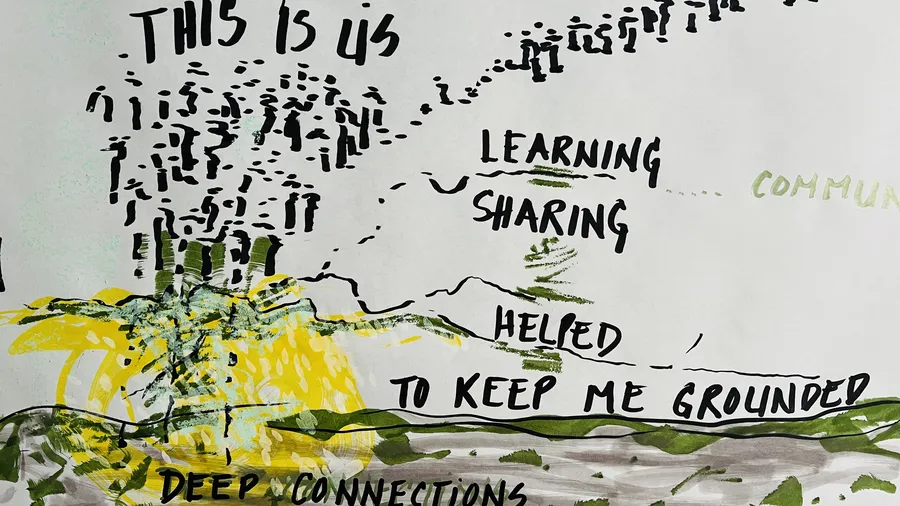 THIS IS US
LEARNING
SHARING
COMMUN
HELPED
TO KEEP ME GROUNDED
DEEP CONNECTIONS